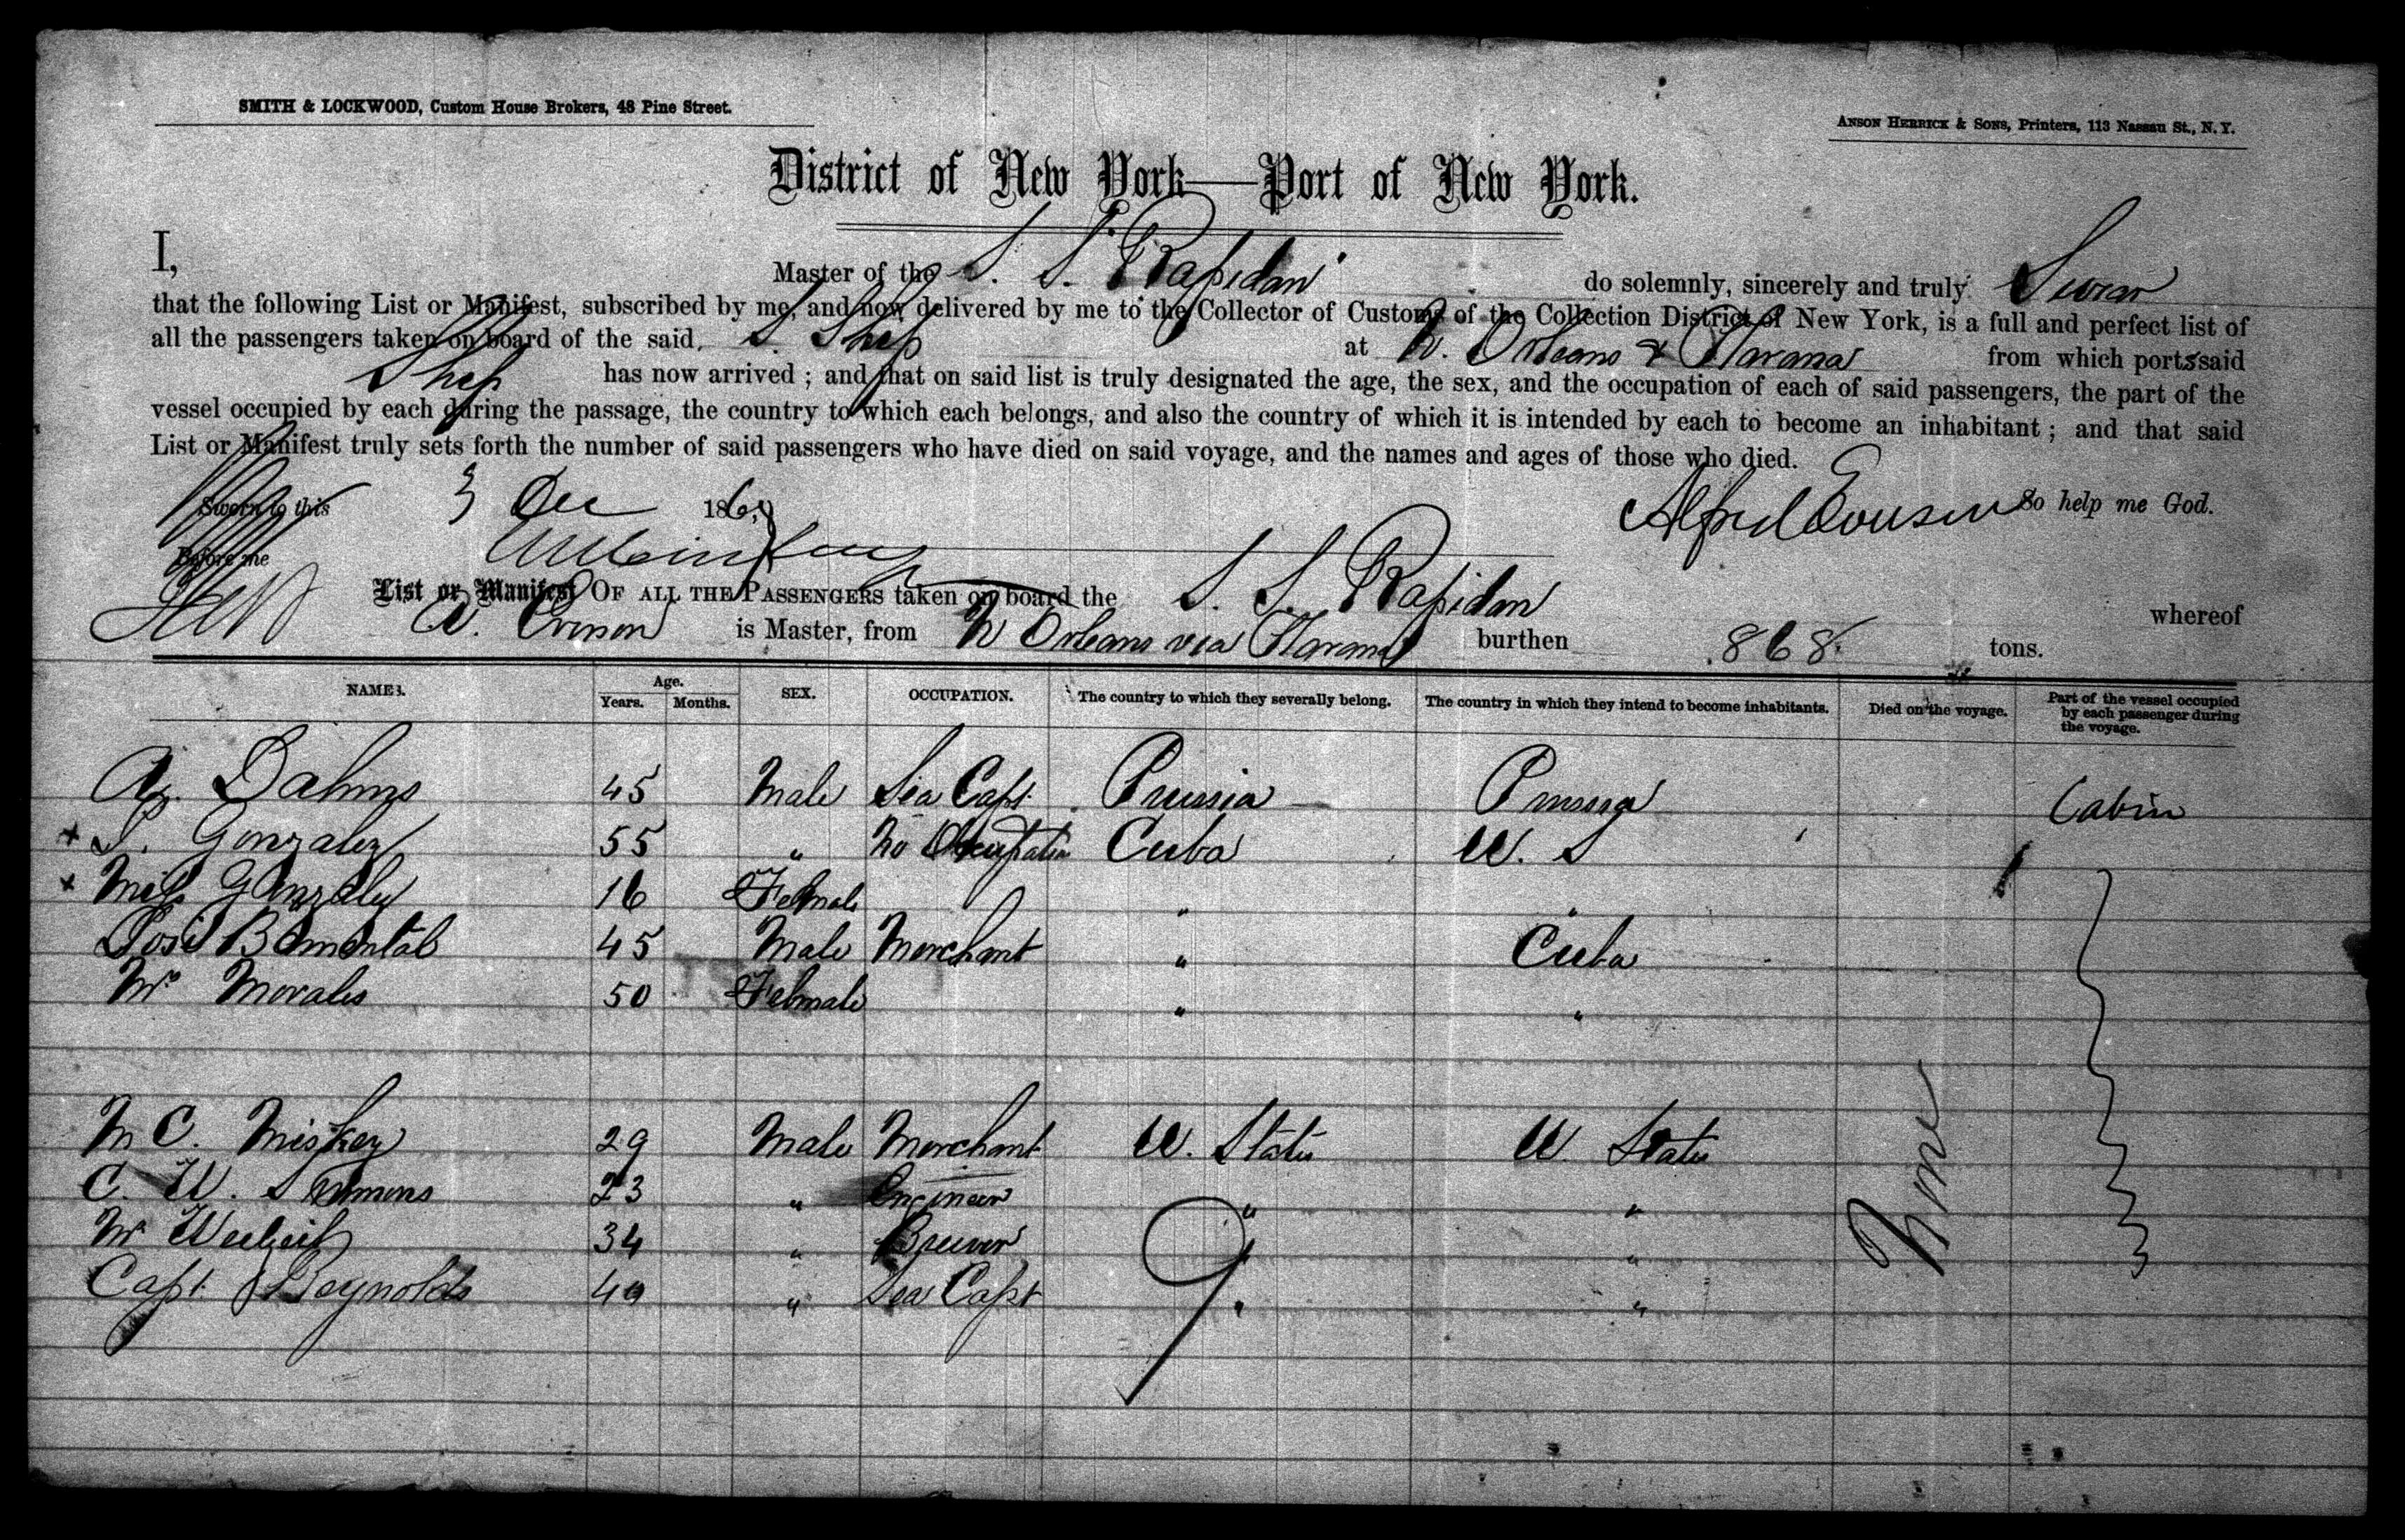 SMITH & LOCKWOOD, Custom House Brokers, 48 Pine Street.
ANSON HERRICK & SONS, Printers, 113 Nassau St., N. Y.
District of New York—Port of New York.
I, Master of the S. S. "Rapidan" do solemnly, sincerely and truly Swear
that the following List or Manifest, subscribed by me, and now delivered by me to the Collector of Customs of the Collection District of New York, is a full and perfect list of
all the passengers taken on board of the said S. Ship at N. Orleans & Havana from which ports said
Ship has now arrived ; and that on said list is truly designated the age, the sex, and the occupation of each of said passengers, the part of the
vessel occupied by each during the passage, the country to which each belongs, and also the country of which it is intended by each to become an inhabitant ; and that said
List or Manifest truly sets forth the number of said passengers who have died on said voyage, and the names and ages of those who died.
Sworn to this 3 Dec 186 Alfred So help me God.
Before me
List or Manifest OF ALL THE PASSENGERS taken on board the S. S. Rapidan whereof
is Master, from N Orleans via Havana burthen 868 tons.
NAMES. Age. Years. Months. SEX. OCCUPATION. The country to which they severally belong. The country in which they intend to become inhabitants. Died on the voyage. Part of the vessel occupied by each passenger during the voyage.
Dahms 45 Male Sea Capt. Prussia Prussia Cabin
x Gonzalez 55 " No Occupation Cuba U. S
x Miss Gonzalez 16 Female " "
José 45 Male Merchant " Cuba
Mrs Morales 50 Female " "
M C. Miskey 29 Male Merchant U. States U States None
C. W. Simmons 23 " Engineer " "
Mr 34 " Brewer " "
Capt Reynolds 49 " Sea Capt " "
9